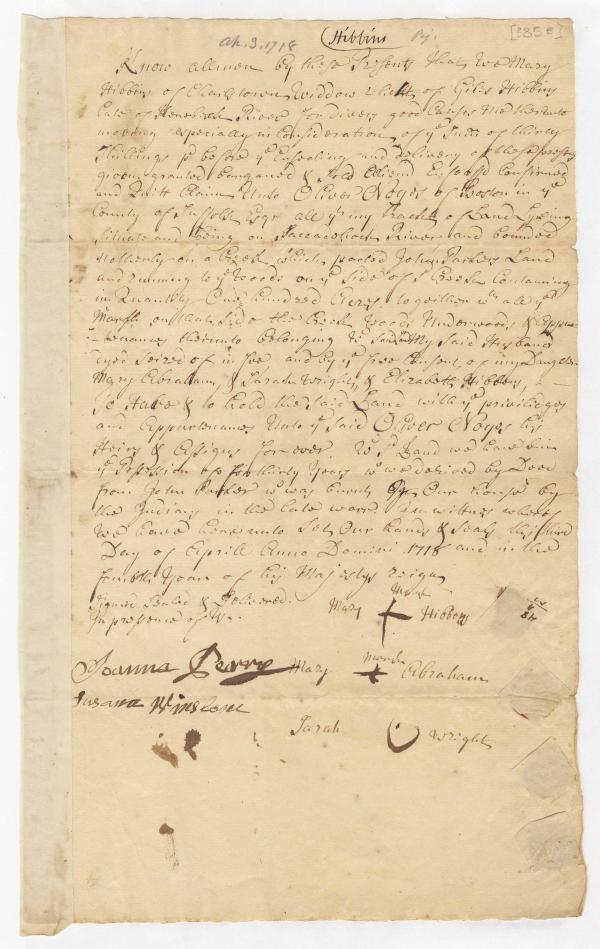 Ap. 3. 1718 Hibbins Pj. [385e]
Know all men by these Presents that we Mary
Hibbins of Charlstown Widdow Relict of Giles Hibbins
late of Kenebeck River for divers good Causes me thereunto
moving especially in Consideration of ye Sum of thirty
Shillings pd before ye Ensealing and delivery of these presents
given granted bargained & Sold Aliend Enfeofd Confirmed
and Quitt Claim Unto Oliver Noyes of Boston in ye
County of Suffolk Esqr all yt my Tract of Land Lying
Situate and being on Saccadehock River and bounded
Notherly on a Creek which parted John Parkers Land
and running to ye Woods on ye Side of sd Creek Containing
in Quantity One hundred Acres together wth all ye
Marsh on that Side the Creek Woods Underwoods & Appur
-tenances thereunto belonging wch Land My Said Husband
dyed Seized of in fee and by ye free Consent of my Daughters
Mary Abraham, & Sarah Wright, & Elizabeth Hibbins,
To Have & to hold the Said Land with ye priviledges
and Appurtenances Unto ye Said Oliver Noyes his
Heirs & Assigns for-ever. wch sd Land we have bin
in ye Possession of for thirty Years wch we desired by Deed
from John Parker wch was burnt in Our house by
the Indians in the late warr. In witnes whereof
We have hereunto Set Our hands & Seals this third
Day of Aprill Anno Domini 1718 and in the
fourth Year of his Majestys reign
Signed Sealed & Delivered.
In presence of Us.
Mary Mark Hibbins
Joanna Perry Mary mark Abraham
Susana Winslow
Sarah Wright